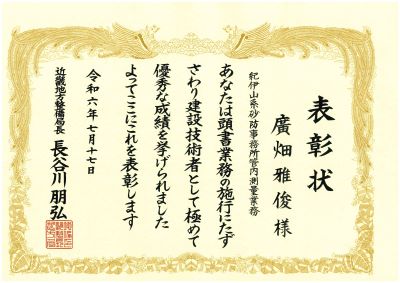 表彰状
廣畑雅俊 様
紀伊山系砂防事務所管内測量業務
あなたは頭書業務の施行にたず
さわり建設技術者として極めて
優秀な成績を挙げられました
よってここにこれを表彰します
令和六年七月十七日
近畿地方整備局長 長谷川朋弘